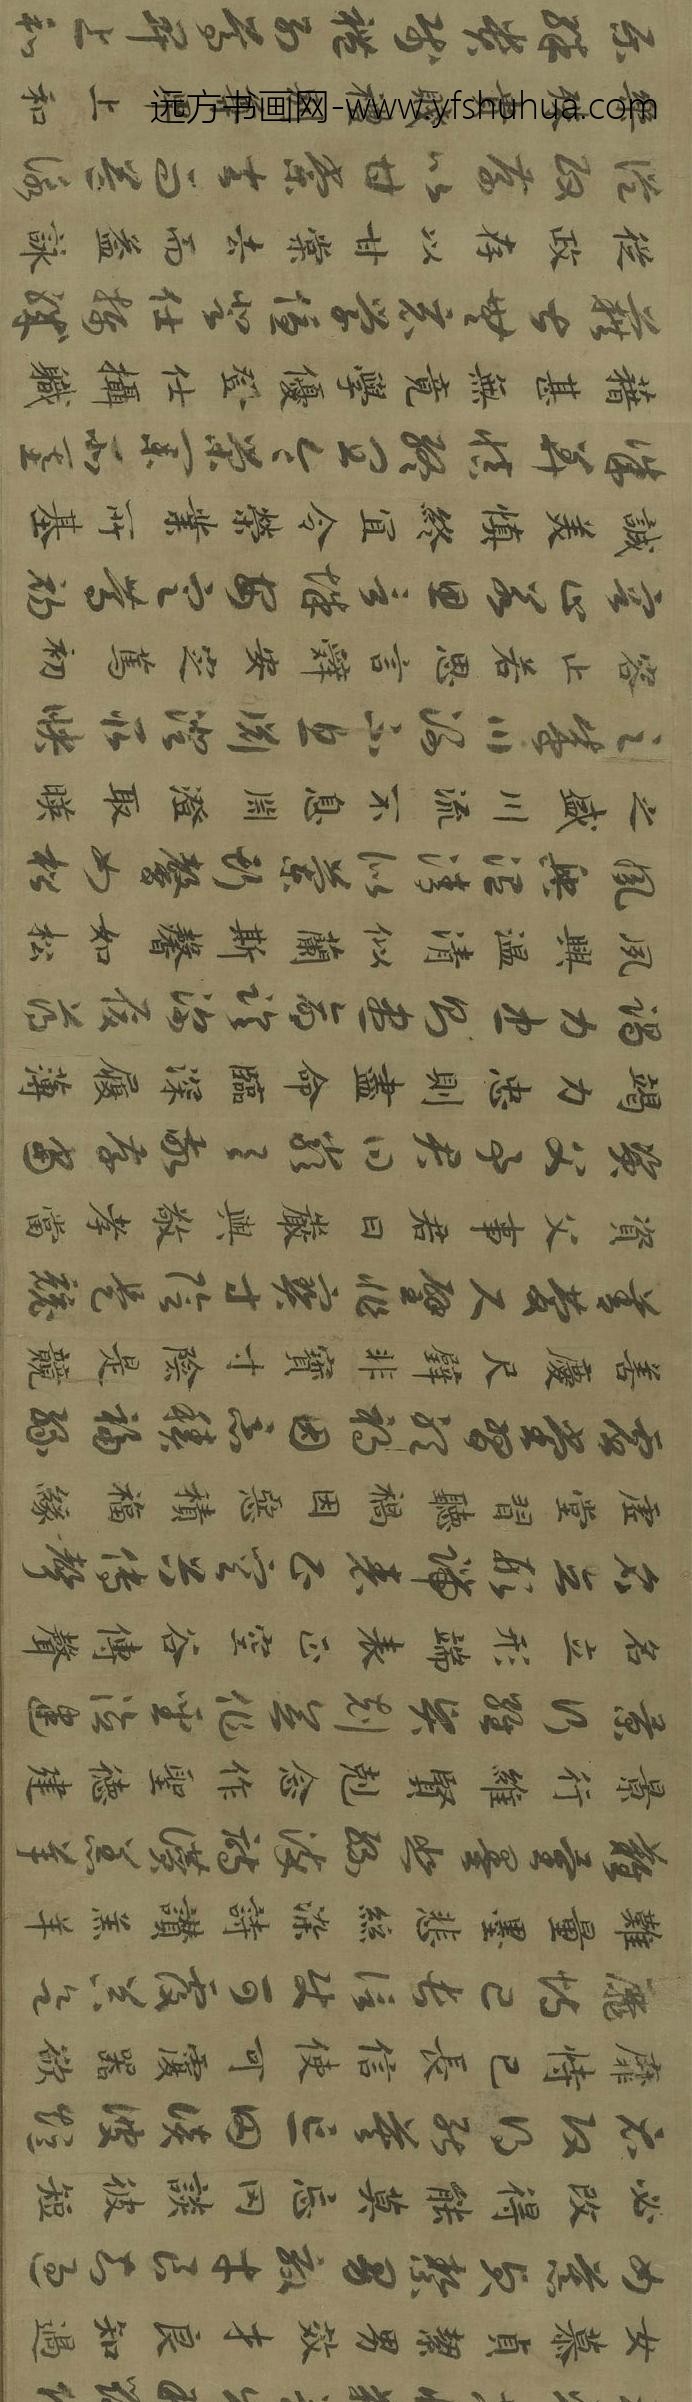 女慕貞絜男效才良知過
女慕貞絜男效才良知過
必改得能莫忘罔談彼短
必改得能莫忘罔談彼短
靡恃己長信使可覆器欲
靡恃己長信使可覆器欲
難量墨悲絲染詩讚羔羊
難量墨悲絲染詩讚羔羊
景行維賢剋念作聖德建
景行維賢剋念作聖德建
名立形端表正空谷傳聲
名立形端表正空谷傳聲
虛堂習聽禍因惡積福緣
虛堂習聽禍因惡積福緣
善慶尺璧非寶寸陰是競
善慶尺璧非寶寸陰是競
資父事君曰嚴與敬孝當
資父事君曰嚴與敬孝當
竭力忠則盡命臨深履薄
竭力忠則盡命臨深履薄
夙興溫清似蘭斯馨如松
夙興溫清似蘭斯馨如松
之盛川流不息淵澄取暎
之盛川流不息淵澄取暎
容止若思言辭安定篤初
容止若思言辭安定篤初
誠美慎終宜令榮業所基
誠美慎終宜令榮業所基
藉甚無竟學優登仕攝職
藉甚無竟學優登仕攝職
從政存以甘棠去而益詠
從政存以甘棠去而益詠
樂殊貴賤禮別尊卑上和
樂殊貴賤禮別尊卑上和
远方书画网-www.yfshuhua.com